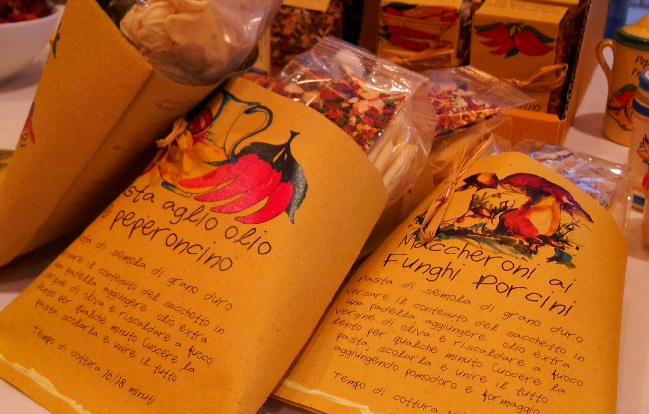 Pasta aglio olio
peperoncino
Pasta di semola di grano duro
versare il contenuto del sacchetto in
una padella aggiungere olio extra
vergine di oliva e riscaldare a fuoco
lento per qualche minuto Cuocere la
pasta scolarla e unire il tutto
Tempo di cottura 16/18 minuti
Maccheroni ai
Funghi Porcini
pasta di semola di grano duro
versare il contenuto del sacchetto in
una padella aggiungere olio extra
vergine di oliva e riscaldare a fuoco
lento per qualche minuto Cuocere la
pasta, scolarla e unire il tutto
aggiungendo pomodoro e formaggio
Tempo di cottura